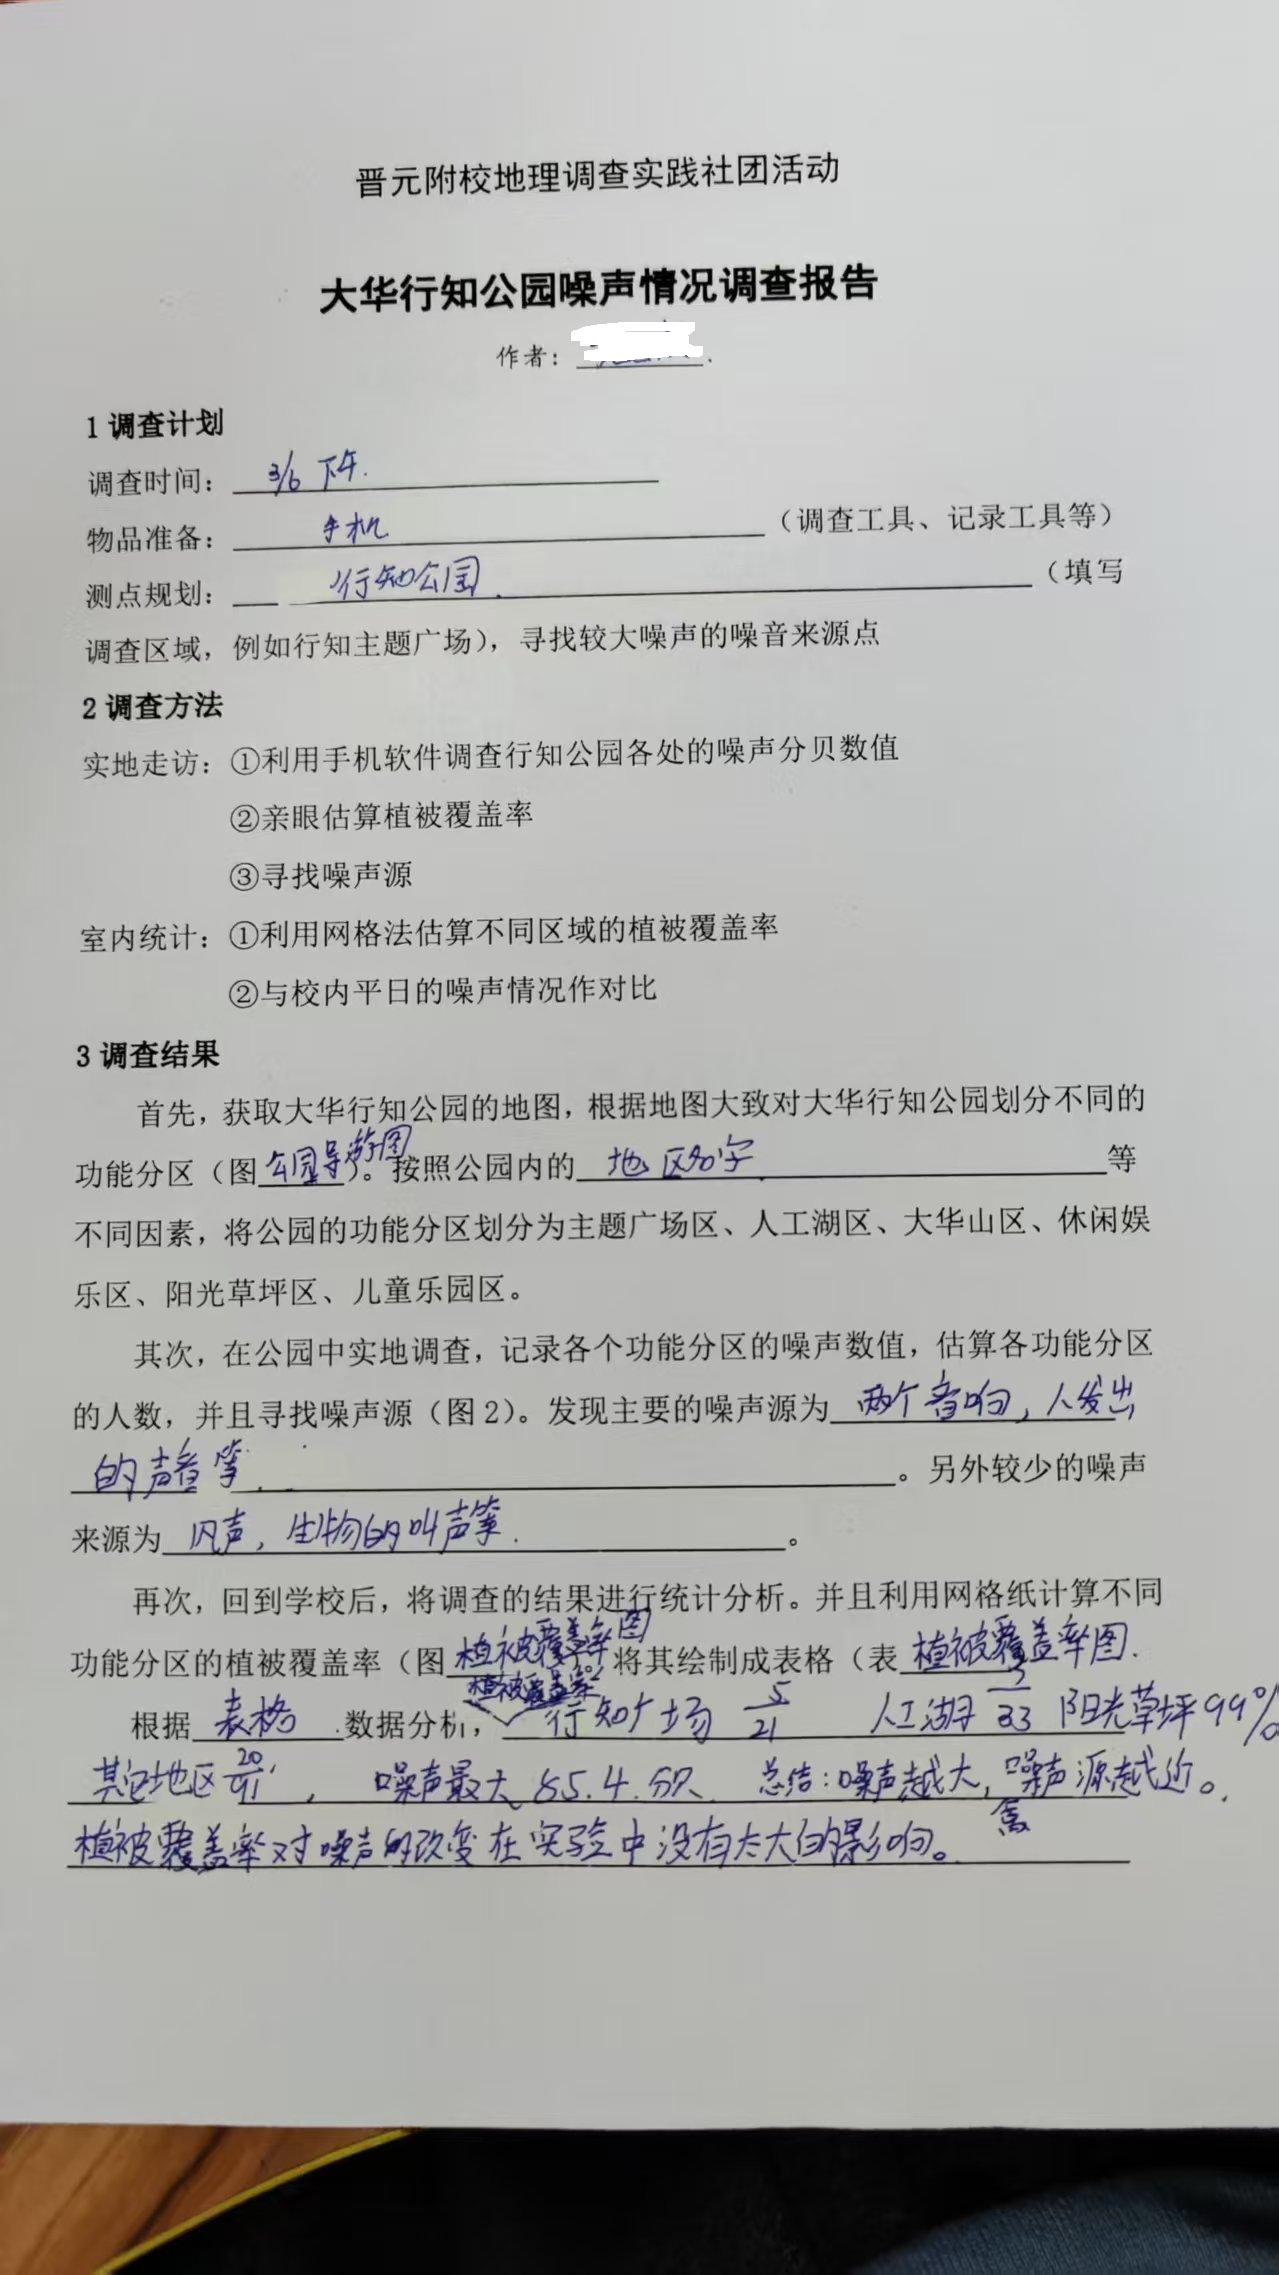 晋元附校地理调查实践社团活动
大华行知公园噪声情况调查报告
作者：
1 调查计划
调查时间： 3/6 下午.
物品准备： 手机 （调查工具、记录工具等）
测点规划： 行知公园. （填写
调查区域，例如行知主题广场），寻找较大噪声的噪音来源点
2 调查方法
实地走访：①利用手机软件调查行知公园各处的噪声分贝数值
②亲眼估算植被覆盖率
③寻找噪声源
室内统计：①利用网格法估算不同区域的植被覆盖率
②与校内平日的噪声情况作对比
3 调查结果
首先，获取大华行知公园的地图，根据地图大致对大华行知公园划分不同的
功能分区（图公园导游图）。按照公园内的 地区名字 等
不同因素，将公园的功能分区划分为主题广场区、人工湖区、大华山区、休闲娱
乐区、阳光草坪区、儿童乐园区。
其次，在公园中实地调查，记录各个功能分区的噪声数值，估算各功能分区
的人数，并且寻找噪声源（图 2）。发现主要的噪声源为 两个音响，人发出
的声音等. 。另外较少的噪声
来源为 风声，生物的叫声等. 。
再次，回到学校后，将调查的结果进行统计分析。并且利用网格纸计算不同
功能分区的植被覆盖率（图 植被覆盖率图 将其绘制成表格（表 植被覆盖率图.
植被覆盖率
根据 表格 数据分析， 行知广场 5/21 人工湖 /33 阳光草坪 99%
其它地区 20/ ， 噪声最大 85.4.分贝 总结：噪声越大，噪声源越近。
植被覆盖率对噪声的改变在实验中没有太大的影响。